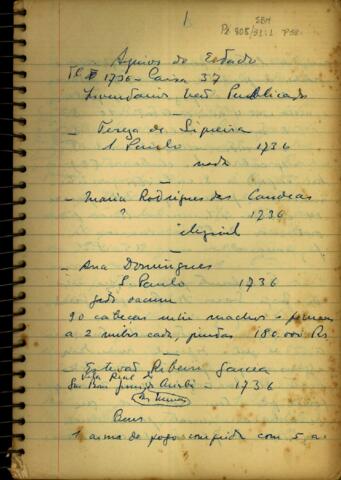 1
SBH
Pi 808/91:1 P58
Aquivos do Estado
TC 1736 - Caixa 37
Inventarios Não Publicados
- Tereza de Siqueira
S. Paulo 1736
nada
- Maria Rodrigues das Candeas
? 1736
ilegivel
- Ana Domingues
S. Paulo 1736
gado vacum
90 cabeças entre machos e femeas
a 2 milrs cada, 180.000 Rs
- Estevão Ribeiro Garcia
Vila Real do
Sr. Bom Jesus do Cuibá - 1736
das Minas
Bens
1 arma de fogo comprida com 5 a